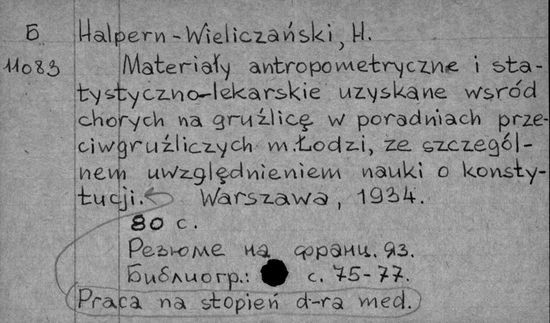 Б Halpern-Wieliczański, H.
11083 Materiały antropometryczne i sta-
tystyczno-lekarskie uzyskane wsród
chorych na gruźlicę w poradniach prze-
ciwgruźliczych m. Łodzi, ze szczegól-
nem uwzględnieniem nauki o konsty-
tucji. Warszawa, 1934.
80 с.
Резюме на франц. яз.
Библиогр.: с. 75-77.
Praca na stopień d-ra med.